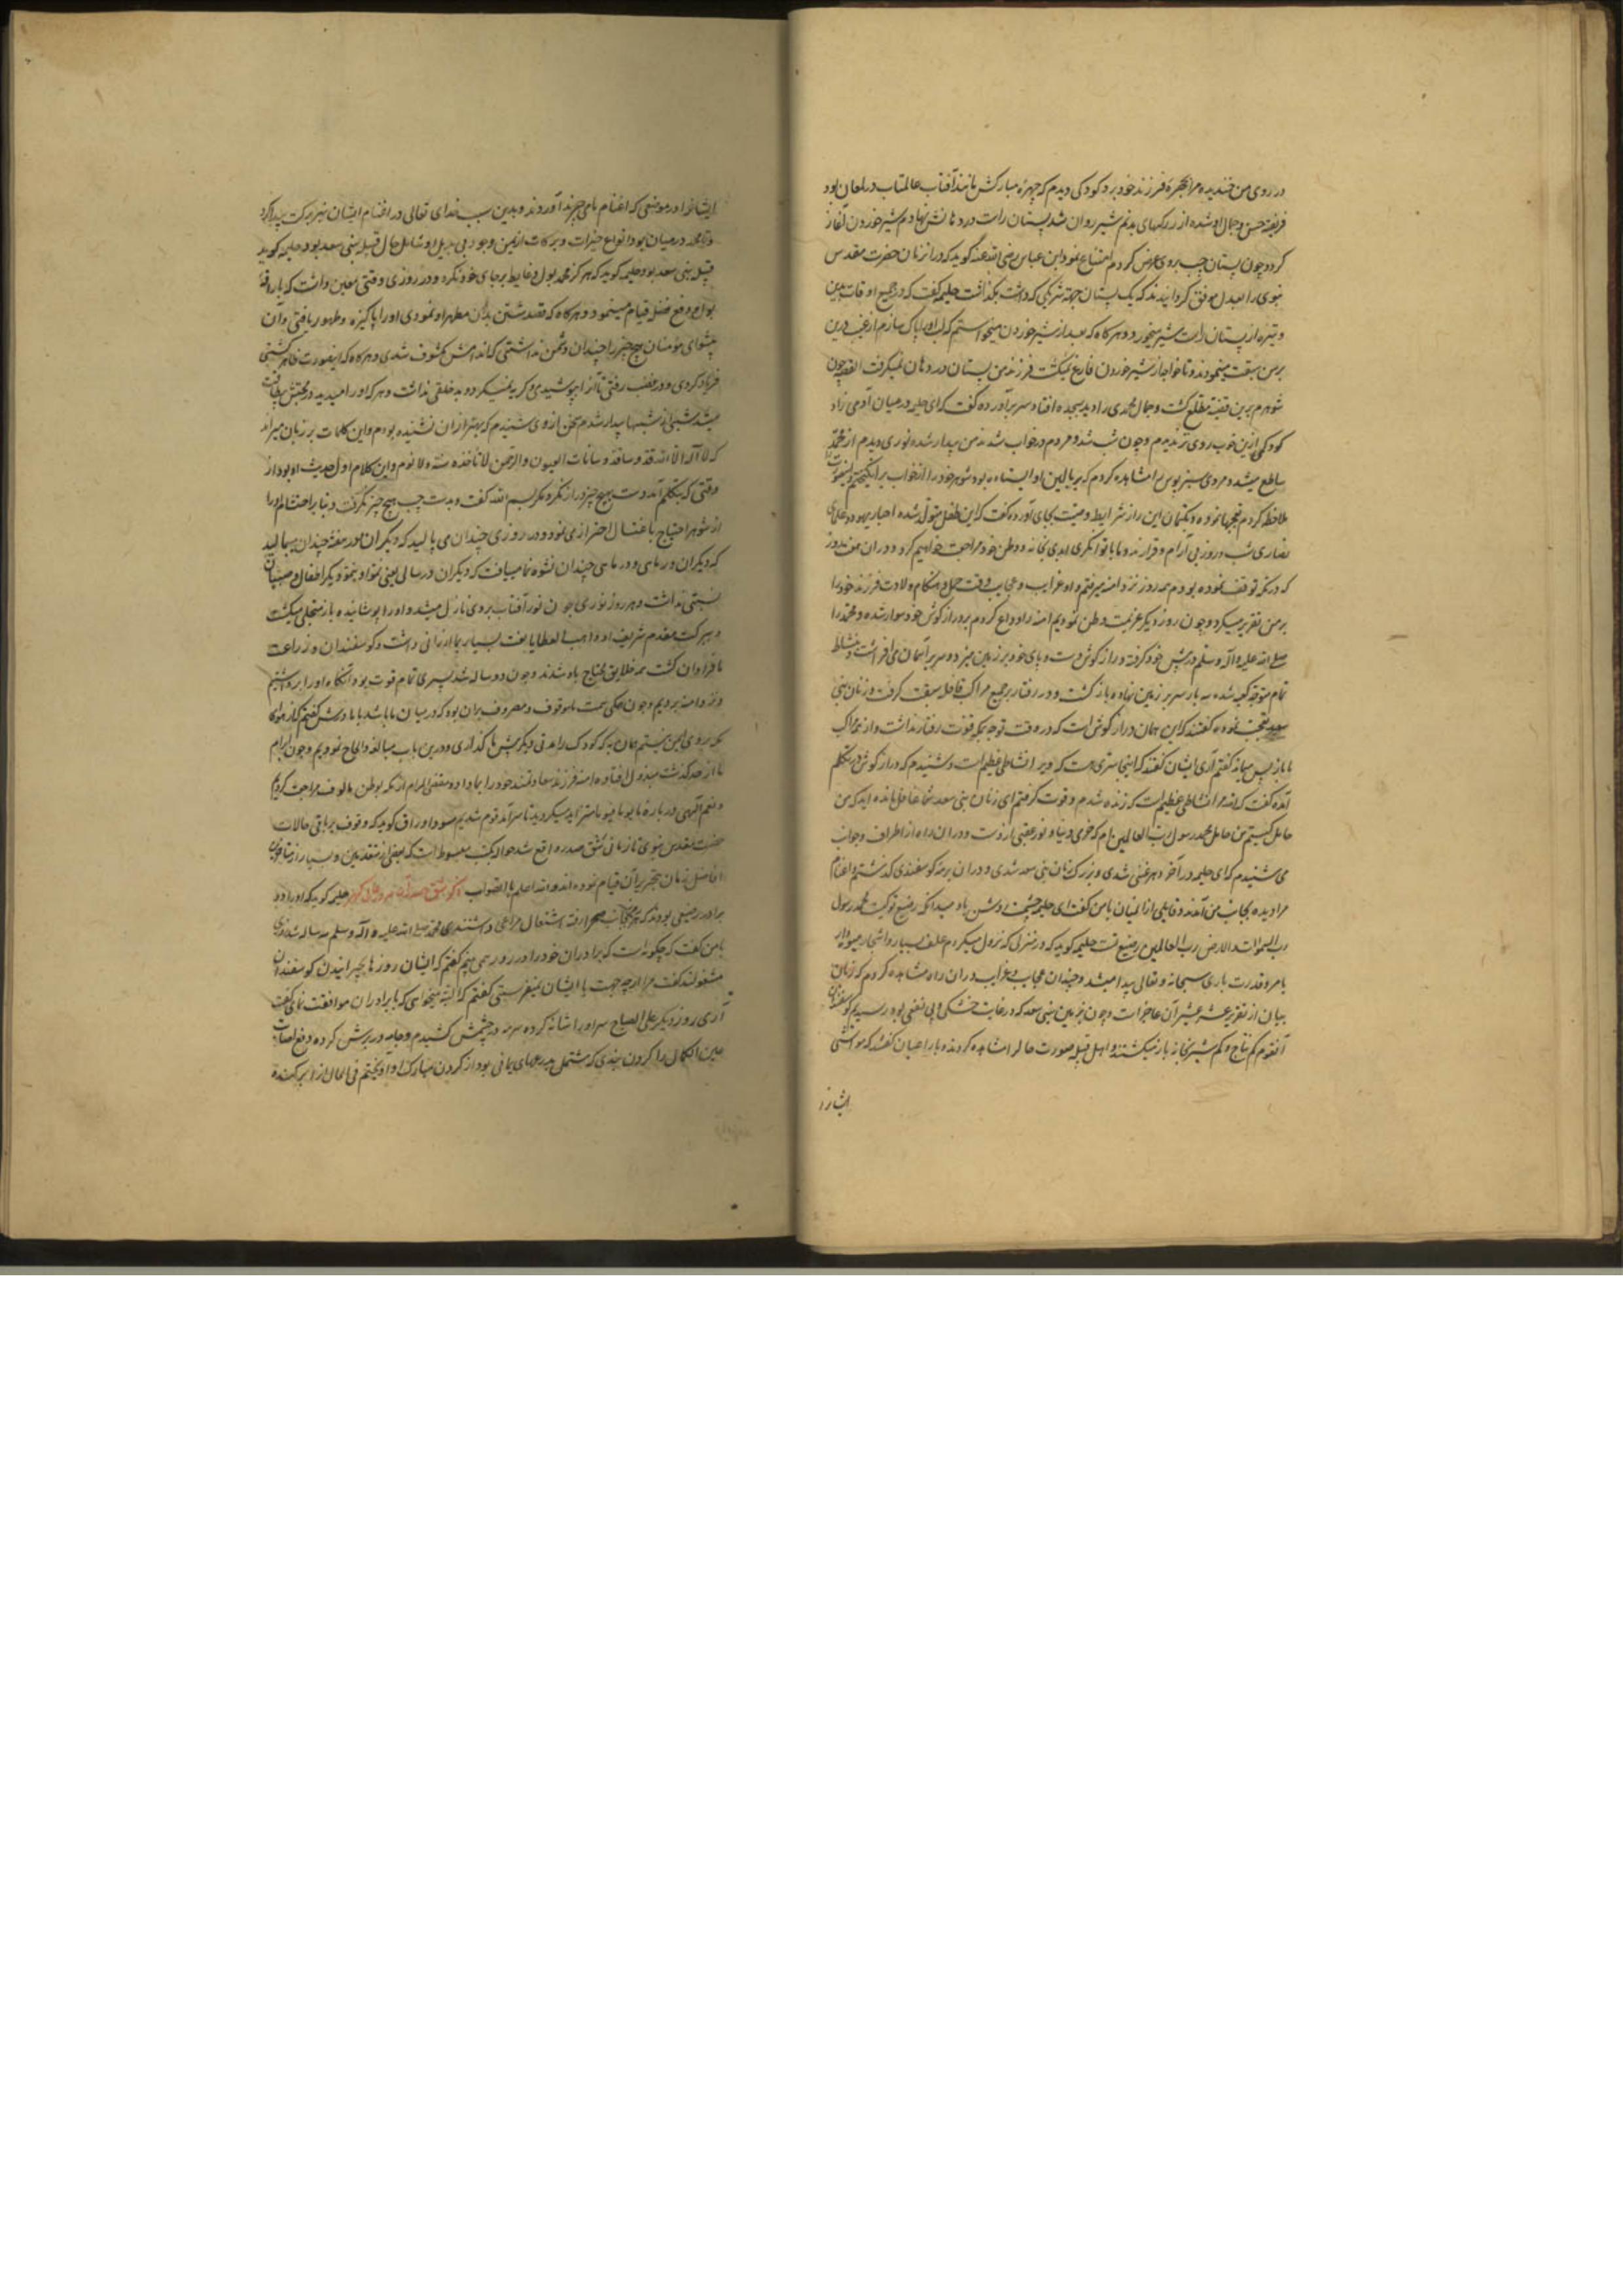 در روی من خندیده مرا بحجرهٔ فرزند خود برد کودکی دیدم که چهرهٔ مبارکش مانند آفتاب عالمتاب در لمعان بود
فریفتهٔ حسن و جمال او شده از رکهای بدنم شیر روان شد پستان راست در دهانش نهادم شیر خوردن آغاز
کرد و چون پستان چپ بر وی عرض کردم امتناع نمود ابن عباس رضی الله عنه کوید که در انزمان حضرت مقدس
نبوی را بعدل موفق کردانیدند که یک پستان جهته شریکی که داشت بکذاشت حلیمه کفت که در جمیع اوقات بدین
وتیره از پستان راست شیر میخورد و هرکاه که بعد از شیر خوردن میخواستم که لب او را پاک سازم از غیب درین
بر من سبقت مینمودند و تا خواجه از شیر خوردن فارغ نمیکشت فرزند من پستان در دهان نمیکرفت القصه چون
شوهرم برین قضیه مطلع کشت و جمال محمدی را دید بسجده افتاد سر برآورده کفت که ای حلیمه در میان آدمی زاد
کودکی ازین خوب روی تر ندیدم و چون شب شد و مردم در خواب شدند من بیدار شده نوری دیدم از محمد
ساطع میشد و مردی سبزپوش را مشاهده کردم که بر بالین او ایستاده بود شوهر خود را از خواب برانکیختم
ملاحظه کردم تعجبها نموده و بکتمان این راز شرایط وصیت بجای آورده کفت که این طفل متولد شده احبار یهود و علمای
نصاری شب و روز بی آرام و قرارند و ما با توانکری ابدی بخانه و وطن خود مراجعت خواهیم کرد و در ان هفت روز
که در مکه توقف نموده بودم همه روز نزد امنه میرفتم و او غرایب و عجایب وقت حمل و هنکام ولادت فرزند خود را
بر من تقریر میکرد و چون روز دیکر عزیمت وطن نمودیم امنه را وداع کردم بر دراز کوش خود سوار شده و محمد را
صلی الله علیه و اله و سلم در پیش خود کرفته و دراز کوش دست و پای خود بر زمین میزد و سر بر آسمان می افراشت و بنشاط
تمام متوجه کعبه شده سه بار سر بر زمین نهاده بازکشت و در رفتار بر جمیع مراکب قافله سبقت کرفت و زنان بنی
سعد تعجب نموده کفتند که این همان دراز کوش است که در وقت توجه بمکه قوت رفتار نداشت و از مراکب
ما باز پس میماند کفتم آری ایشان کفتند که اینجا سری هست که ویرا نشاطی عظیم است و شنیدم که دراز کوش در تکلم
آمده کفت که والله مرا نشاطی عظیم است که زنده شدم و قوت کرفتم ای زنان بنی سعد شما غافل مانده اید که من
حامل کیستم من حامل محمد رسول رب العالمین ام که خرمی دنیا و نور عقبی از وست و در ان راه از اطراف و جوانب
می شنیدم که ای حلیمه در آخر دهر غنی شدی و بزرک زنان بنی سعد شدی و در ان بر رمهٔ کوسفندی کذشتم اغنام
مرا دیده بجانب من آمدند و قایلی از انمیان با من کفت ای حلیمه چشمت روشن باد میدانی که رضیع تو کیست محمد رسول
رب السموات و الارض رب العالمین رضیع تست حلیمه کوید که در هر منزلی که نزول میکردم علف بسیار و اشجار میوه دار
بامر و قدرت باری سبحانه و تعالی پیدا میشد و چندان عجایب و غرایب در ان راه مشاهده کردم که زبان
بیان از تقریر عشر عشیر آن عاجز است و چون بزمین بنی سعد که در غایت خشکی و بی نفعی بود رسیدیم کوسفندان
آنقوم کم نتاج و کم شیر بخانه باز میکشتند و اهل قبیله صورت حال را مشاهده کردند با راعیان کفتند که مواشی
ایشان را
ایشان را در موضعی که اغنام ما می چرند آوردند و بدین سبب خدای تعالی در اغنام ایشان نیز برکت پیدا کرد
و تا محمد در میان بود انواع خیرات و برکات از یمن وجود بی بدیل او شامل حال قبیله بنی سعد بود و حلیمه کوید
قبیله بنی سعد بود حلیمه کوید که هرکز محمد بول و غایط بر جای خود نکرد و در روزی وقتی معین داشت که
بود و دفع فضله قیام مینمود و هرکاه که قصد شستن بدن مطهر او نمودی او را پاکیزه و طهور یافتی و آن
پیشوای مؤمنان هیچ چیز را چندان دشمن نداشتی که اندامش مکشوف شدی و هرکاه که اینصورت ظاهر کشتی
فریاد کردی و در غضب رفتی تا آنرا بپوشیدی و کریه نمیکرد و بدخلقی نداشت و هر که او را میدید در محبتش
میشد شبی از شبها بیدار شدم سخن از وی شنیدم که بهتر از ان نشنیده بودم و این کلمات بر زبان میراند
که لا اله الا الله قدوسا قدوسا نامت العیون و الرحمن لا تاخذه سنة و لا نوم و این کلام اول حدیث او بود از
وقتی که بتکلم آمد دست بهیچ چیز دراز نکرد مکر بسم الله کفت و بدست چپ هیچ چیز نکرفت و بنا بر احتشام او را
از شوهر احتیاج باغتسال احترازی نمود و در روزی چندان می بالید که دیکران در هفته چندان میبالید
که دیکران در ماهی و در ماهی چندان نشو و نما مییافت که دیکران در سالی یعنی نمو او بنمو دیکر اطفال و صبیان
نسبتی نداشت و هر روز نوری چون نور آفتاب بر وی نازل میشد و او را پوشانیده باز منجلی میکشت
و ببرکت مقدم شریف او واهب العطایا نعمت بسیار بما ارزانی داشت و کوسفندان و زراعت
ما فراوان کشت همه خلایق محتاج ما شدند و چون دو ساله شد پسری تمام قوت بود آنکاه او را برداشتیم
و نزد امنه بردیم و چون همکی همت موقوف و مصروف بران بود که در میان ما باشد با مادرش کفتیم که از هوای
مکه بر وی ایمن نیستم همان به که کودک را مدتی دیکر پیش ما کذاری و درین باب مبالغه و الحاح نمودیم و چون ابرام
ما از حد کذشت مبذول افتاده امنه فرزند سعادتمند خود را بما داد و مقضی المرام از مکه بوطن مالوف مراجعت کردیم
و نعم الهی در باره ما یوما فیوما متزاید میکردید تا سرآمد قوم شدیم مسود اوراق کوید که وقوف بر باقی حالات
حضرت مقدس نبوی تا زمانی که شق صدر واقع شد حواله بکتب مبسوط است که بعضی از متقدمین و بسیار از متاخرین
افاضل زمان بتحریر آن قیام نموده اند و الله اعلم بالصواب ذکر شق صدر آن سرور حلیمه کوید که او را دو
برادر رضیعی بودند که بجانب صحرا رفته اشتغال مراعی داشتندی محمد صلی الله علیه و اله و سلم سه ساله شد روزی
با من کفت که چکونه است که برادران خود را در روز نمی بینم کفتم که ایشان روزها بچرانیدن کوسفندان
مشغولند کفت مرا از چه جهت با ایشان نمیفرستی کفتم که البته میخواهی که با برادران موافقت نمائی کفت
آری روز دیکر علی الصباح سر او را شانه کرده سرمه در چشمش کشیدم و جامه در برش کرده دفع اصابت
عین الکمال را کردن بندی که مشتمل بر مهرهای یمانی بود از کردن مبارک او آویختم فی الحال از سر کنده